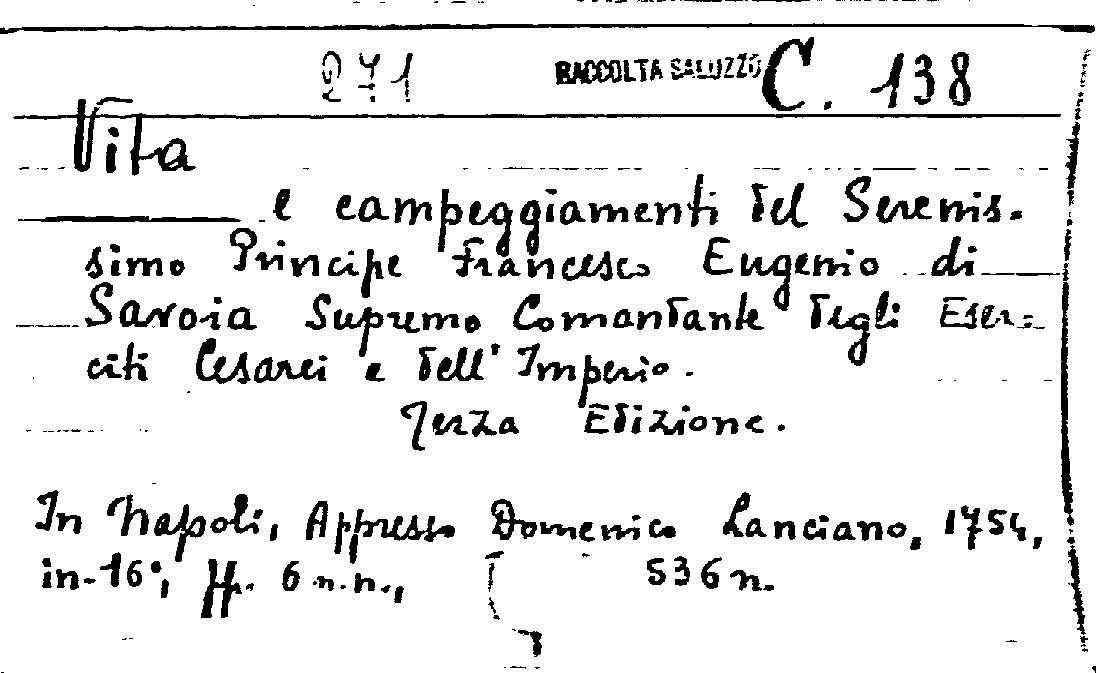 271 RACCOLTA SALUZZO C. 138
Vita
e campeggiamenti del Serenis-
simo Principe Francesco Eugenio di
Savoia Supremo Comandante degli Eser-
citi Cesarei e dell'Imperio.
Terza Edizione.
In Napoli, Appresso Domenico Lanciano, 1754,
in-16°, ff. 6 n.n., 536 n.